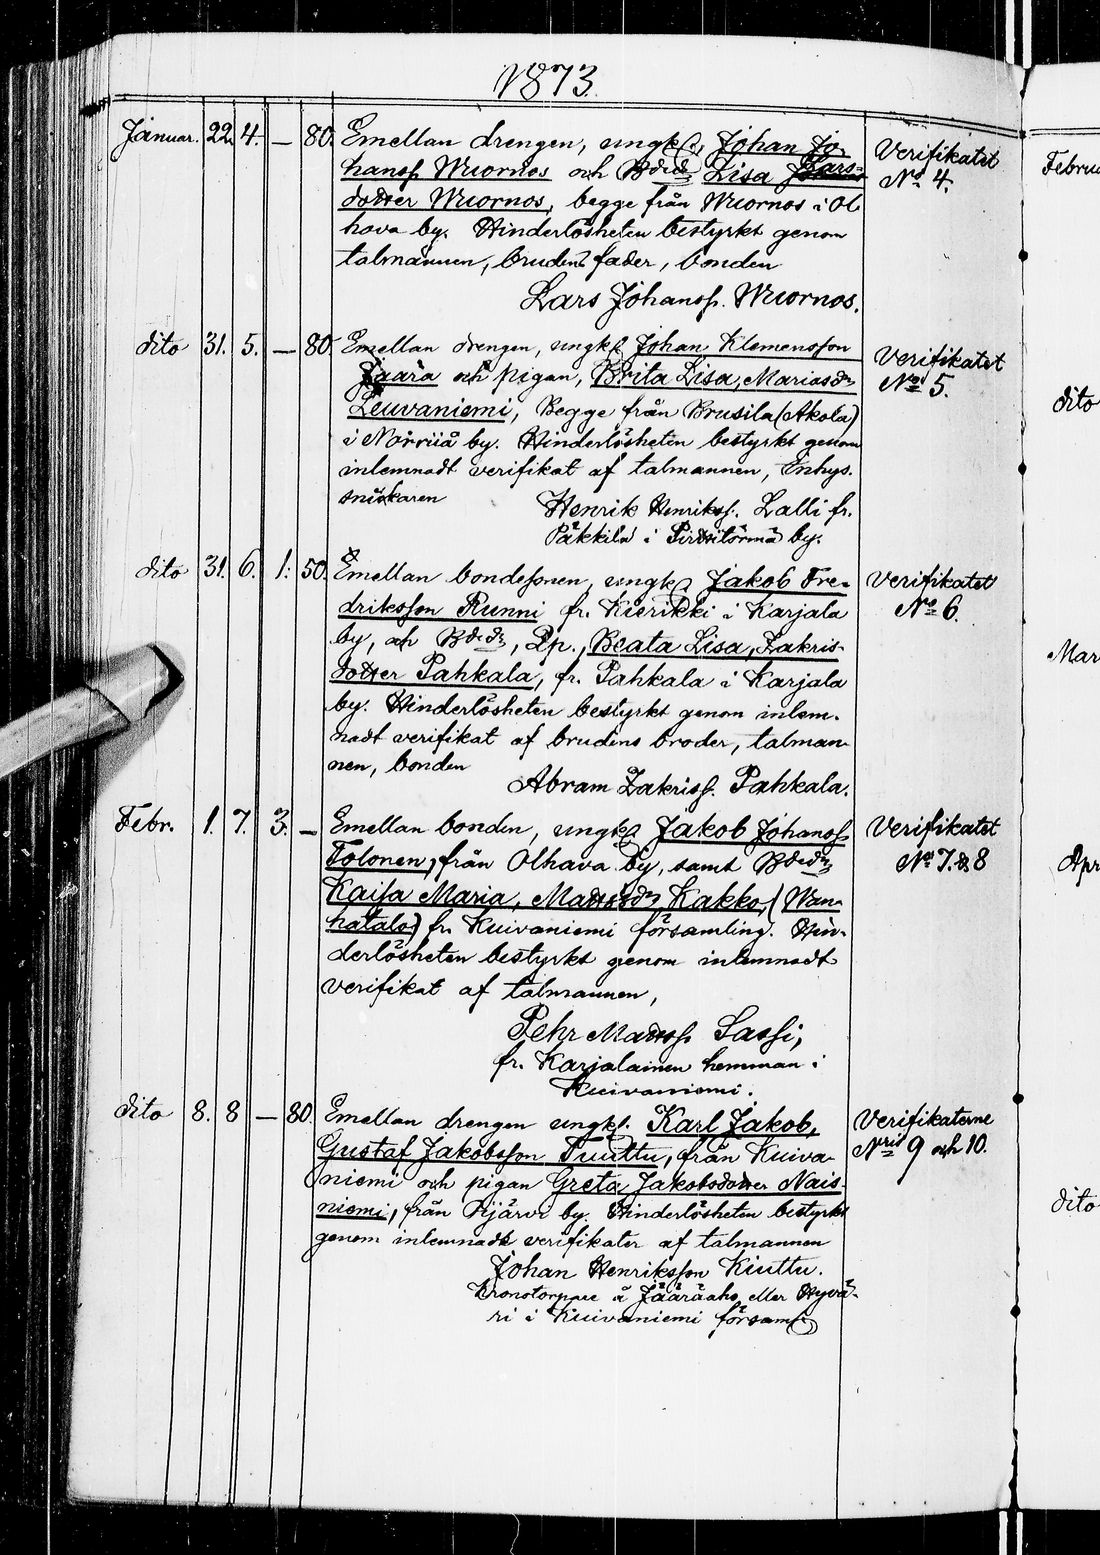 1873.
Januar. 22. 4. — 80. Emellan drengen, ungk. Johan Jo- Verifikatet
hanss. Wuornos och Bdedr Lisa Lars- No 4.
dotter Wuornos, begge från Wuornos i Ol
hava by. Hinderlösheten bestyrkt genom
talmannen, brudens fader, bonden
Lars Johanss. Wuornos.
dito 31. 5. — 80. Emellan drengen, ungk. Johan Klemensson Verifikatet
Jaara och pigan, Brita Lisa, Mariasdr No 5.
Leuvaniemi, Begge från Brusila (Akola)
i Norriiå by. Hinderlösheten bestyrkt genom
inlemnadt verifikat af talmannen, Enhys.
snickaren Henrik Henrikss. Lalli fr.
Päkkilä i Pirttitörmä by.
dito 31. 6. 1. 50. Emellan bondesonen, ungk. Jakob Fre- Verifikatet
driksson Runni fr. Kierikki i Karjala No 6.
by, och Bdedr, Pp., Beata Lisa, Zakris-
dotter Pahkala, fr. Pahkala i Karjala
by. Hinderlösheten bestyrkt genom inlem-
nadt verifikat af brudens broder, talman-
nen, bonden
Abram Zakriss. Pahkala.
Febr. 1. 7. 3. — Emellan bonden, ungk. Jakob Johanss. Verifikatet
Tolonen, från Olhava by, samt Bdedr No 7. & 8
Kaisa Maria, Mattsdr, Kakko, (Wan-
hatalo) fr. Kuivaniemi församling. Hin-
derlösheten bestyrkt genom inlemnadt
verifikat af talmannen,
Pehr Mattss. Sassi,
fr. Karjalainen hemman i
Kuivaniemi.
dito 8. 8 — 80. Emellan drengen ungk. Karl Jakob, Verifikaterne
Gustaf Jakobsson Tuuttu, från Kuiva- Nris 9 och 10.
niemi och pigan Greta Jakobsdotter Nais-
niemi, från Ojärvi by. Hinderlösheten bestyrkt
genom inlemnadt verifikater af talmannen
Johan Henriksson Kiuttu.
Kronotorpare å Jääräaho eller Hyvä-
ri i Kuivaniemi församl.
Februa
dito
Mar
Apr
dito